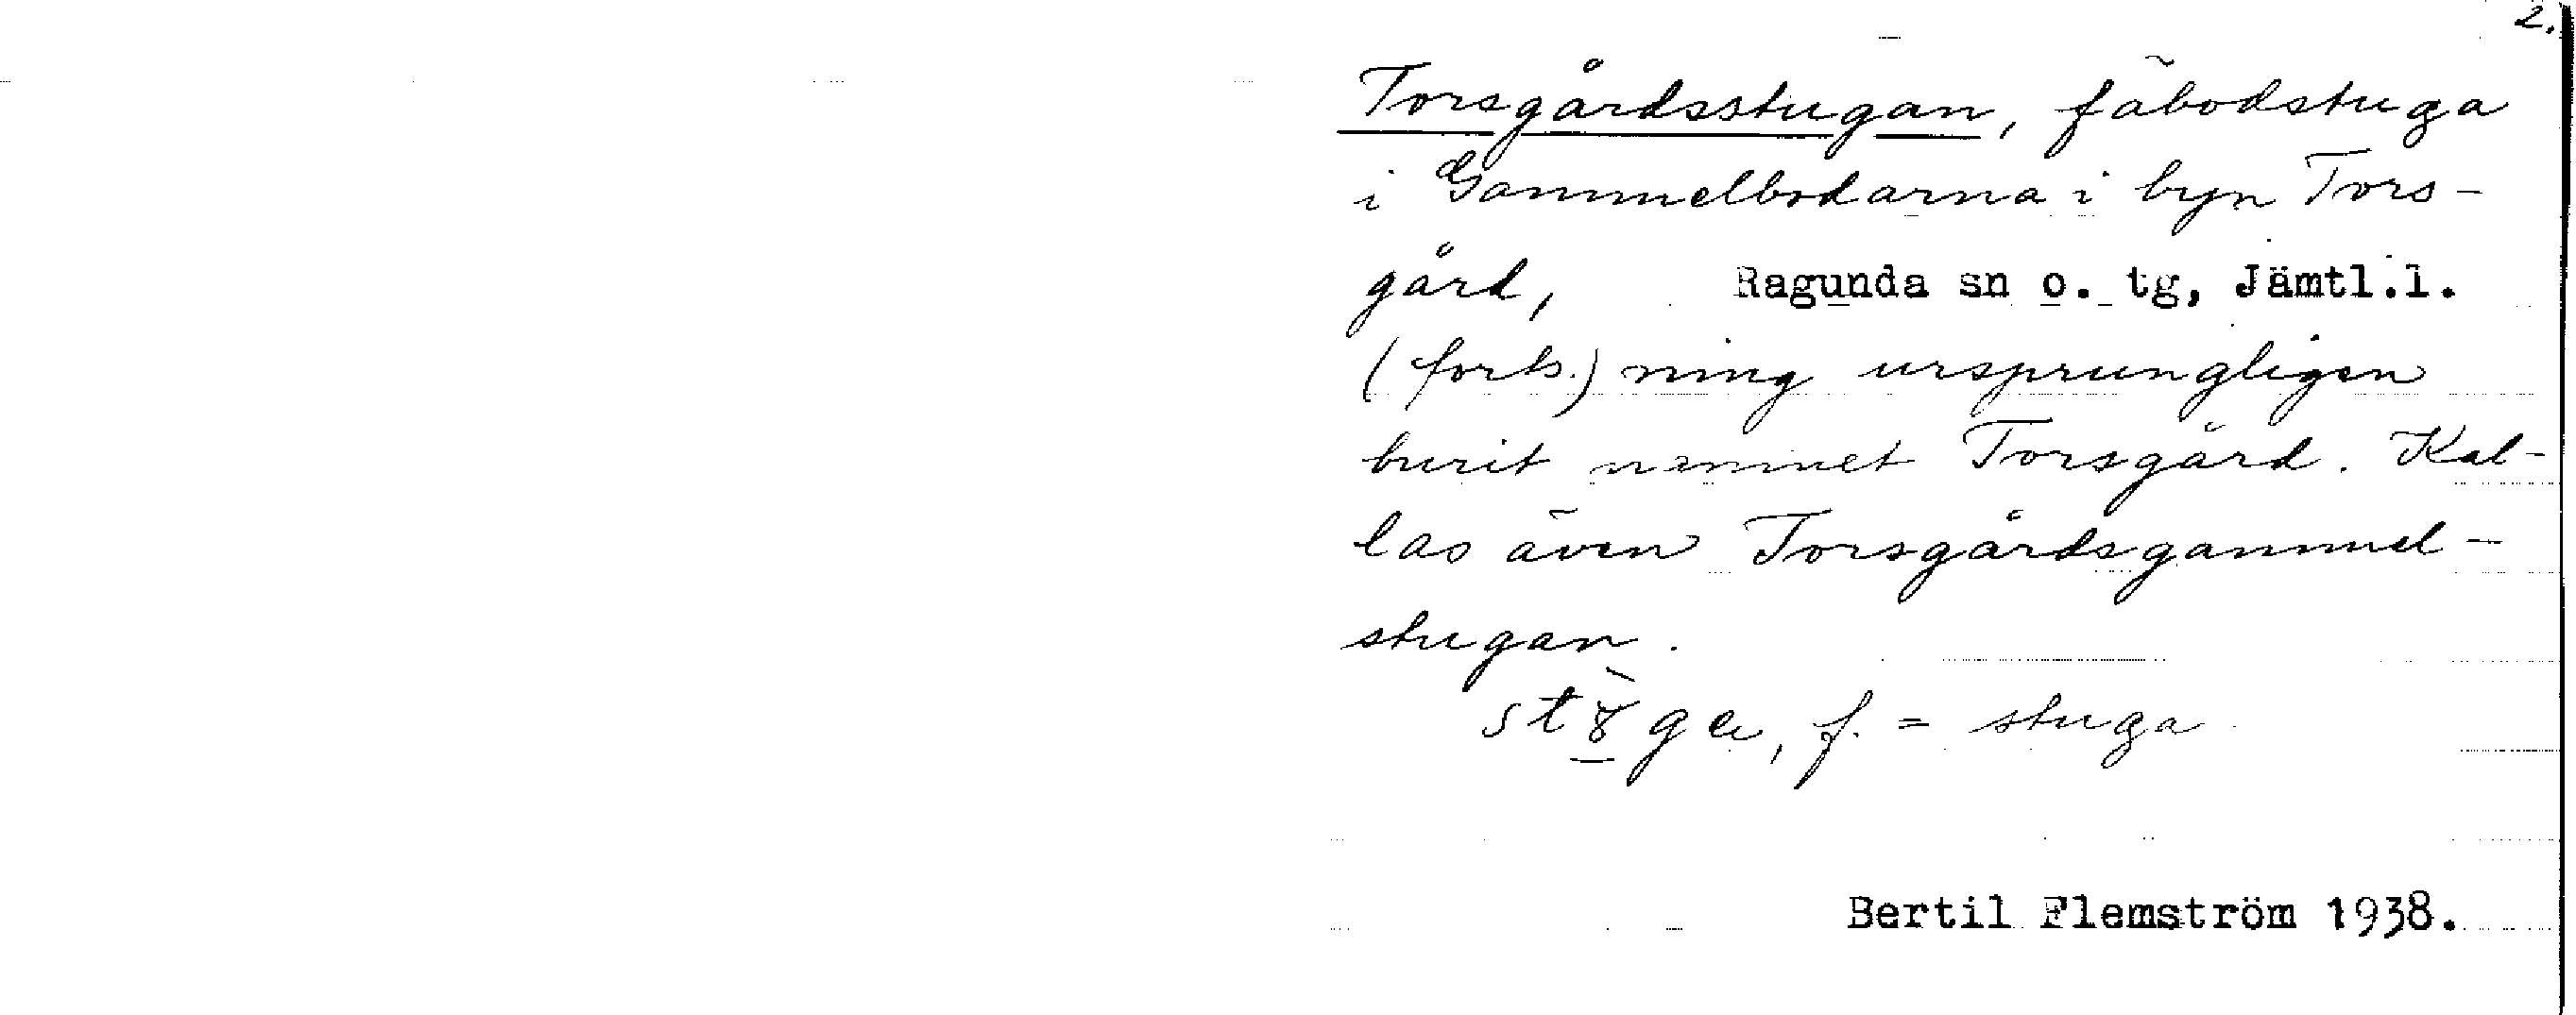 2.
Torsgårdsstugan, fäbodstuga
i Gammelbodarna i byn Tors-
gård, Ragunda sn o. tg, Jämtl.l.
(forts.) ning ursprungligen
burit namnet Torsgård. Kal-
las även Torsgårdsgammel-
stugan.
f. = stuga
Bertil Flemström 1938.